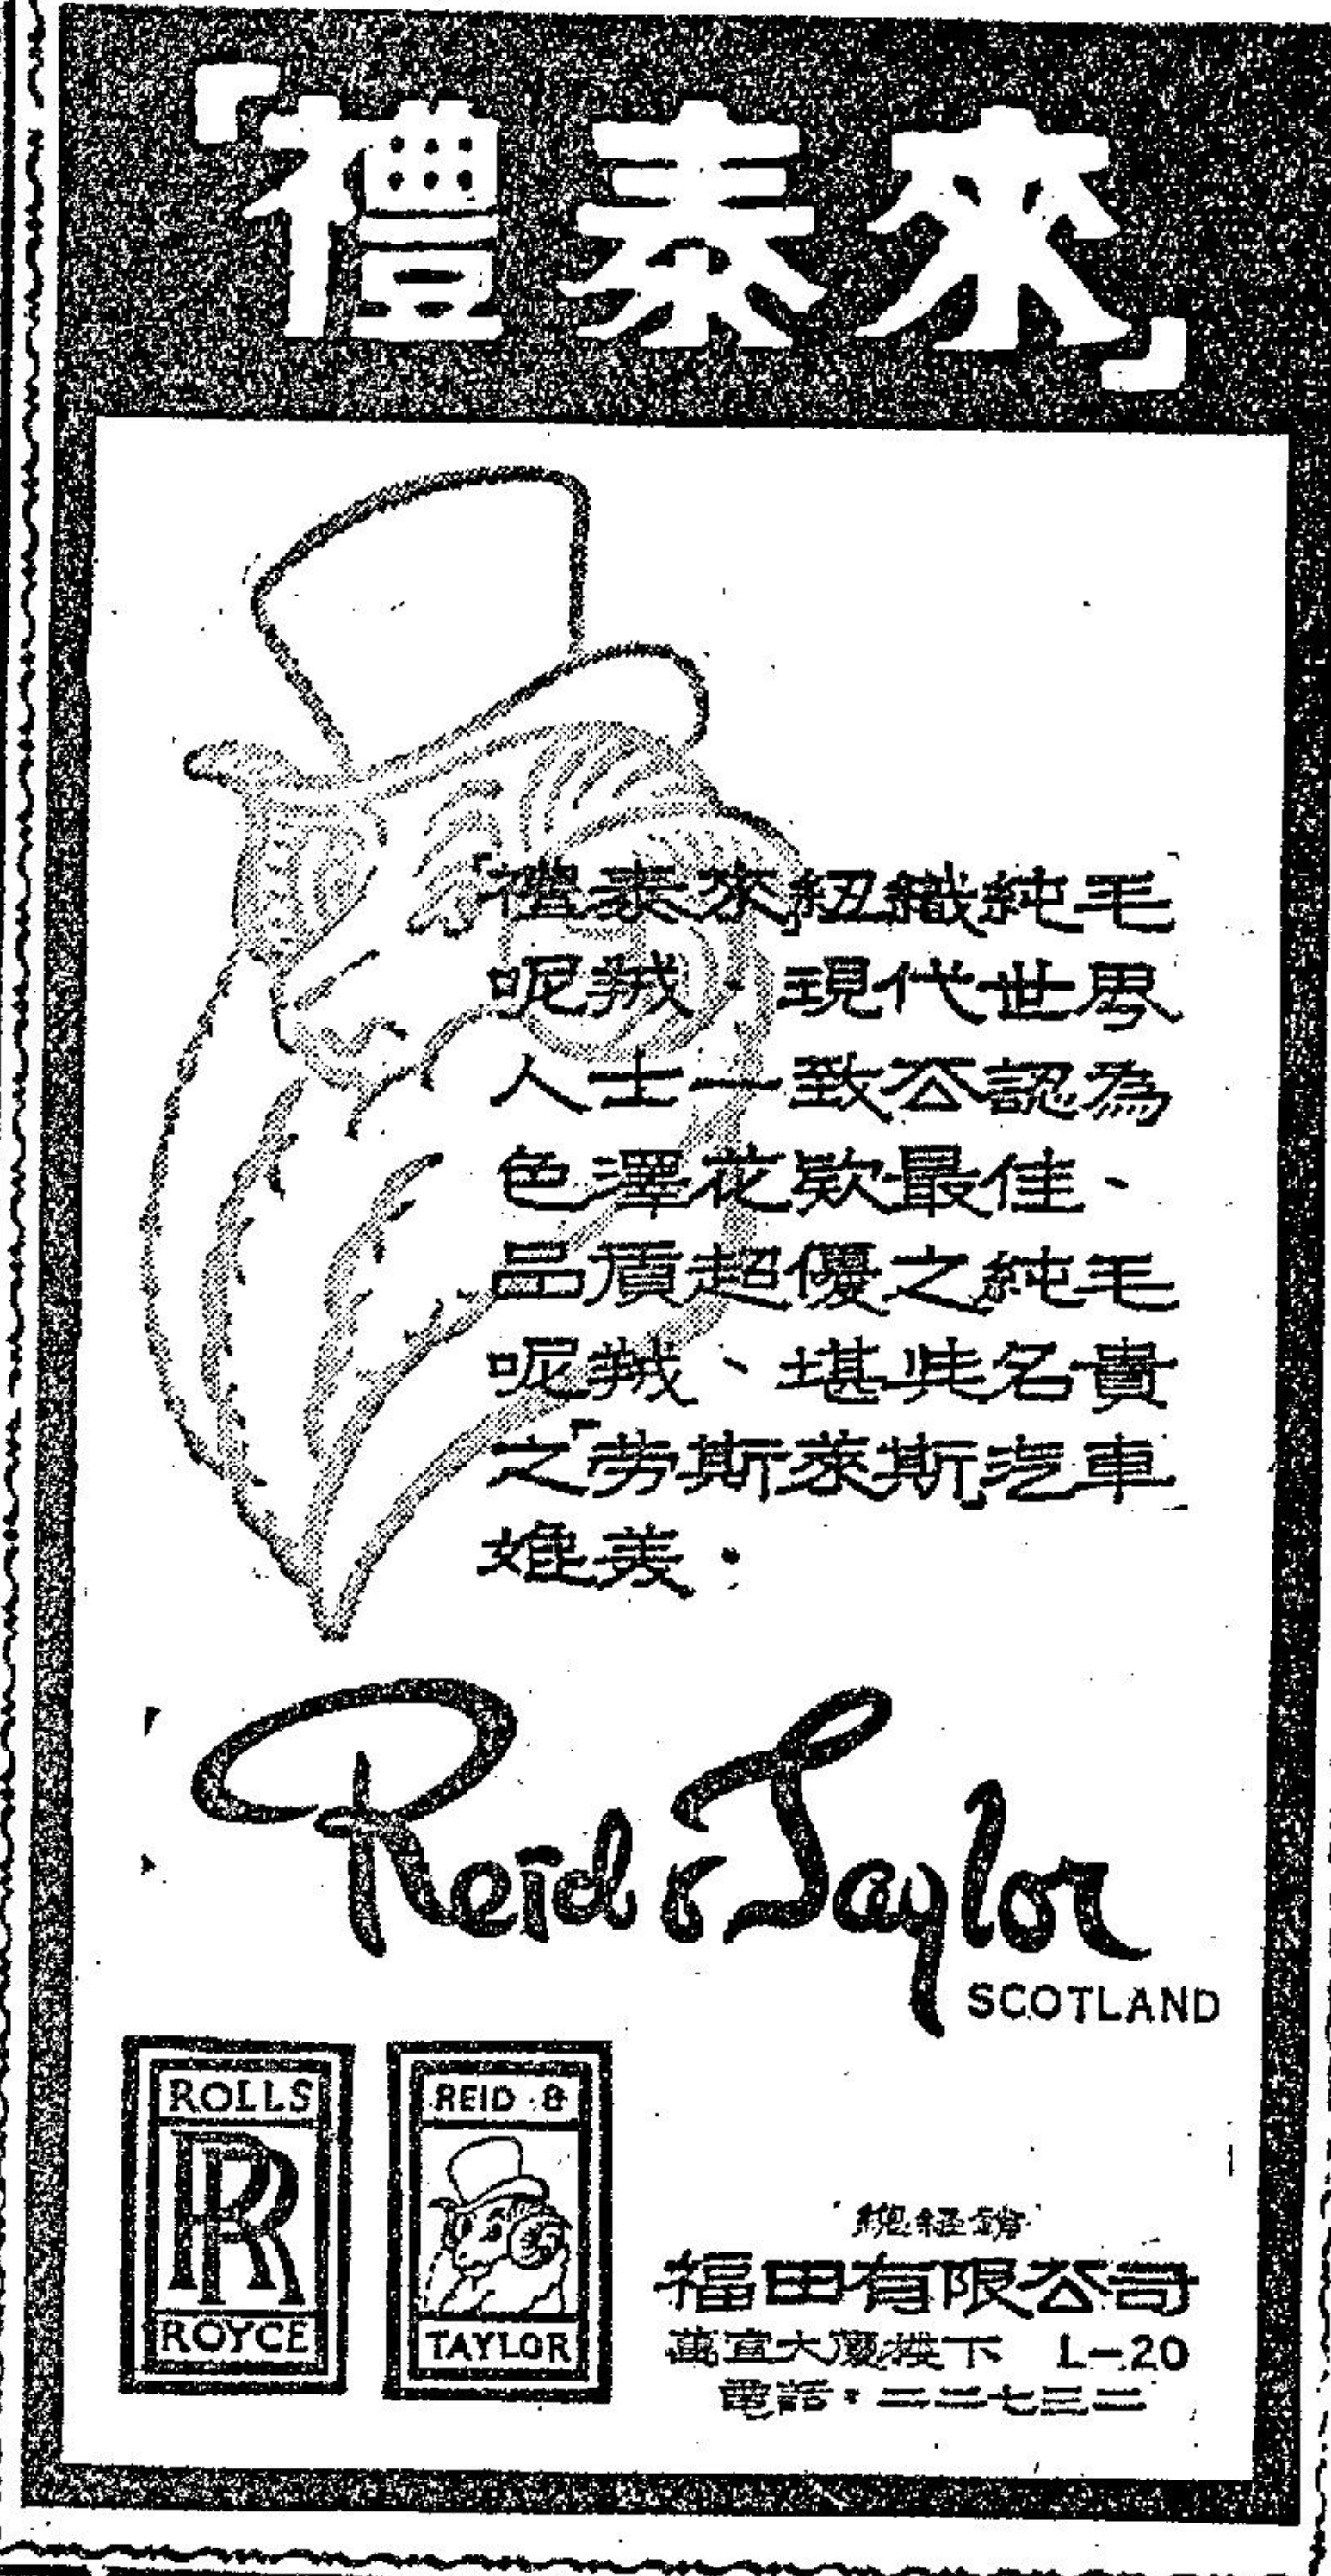 「禮泰來」
「禮泰來」紐織純毛
呢羢·現代世界
人士一致公認為
色澤花欵最佳、
品質超優之純毛
呢羢、堪與名貴
之「劳斯萊斯」汽車
媲美·
Reid & Taylor
SCOTLAND
ROLLS
RR
ROYCE
REID &
TAYLOR
總經銷
福田有限公司
萬宜大廈樓下 L-20
電話·二二七三二